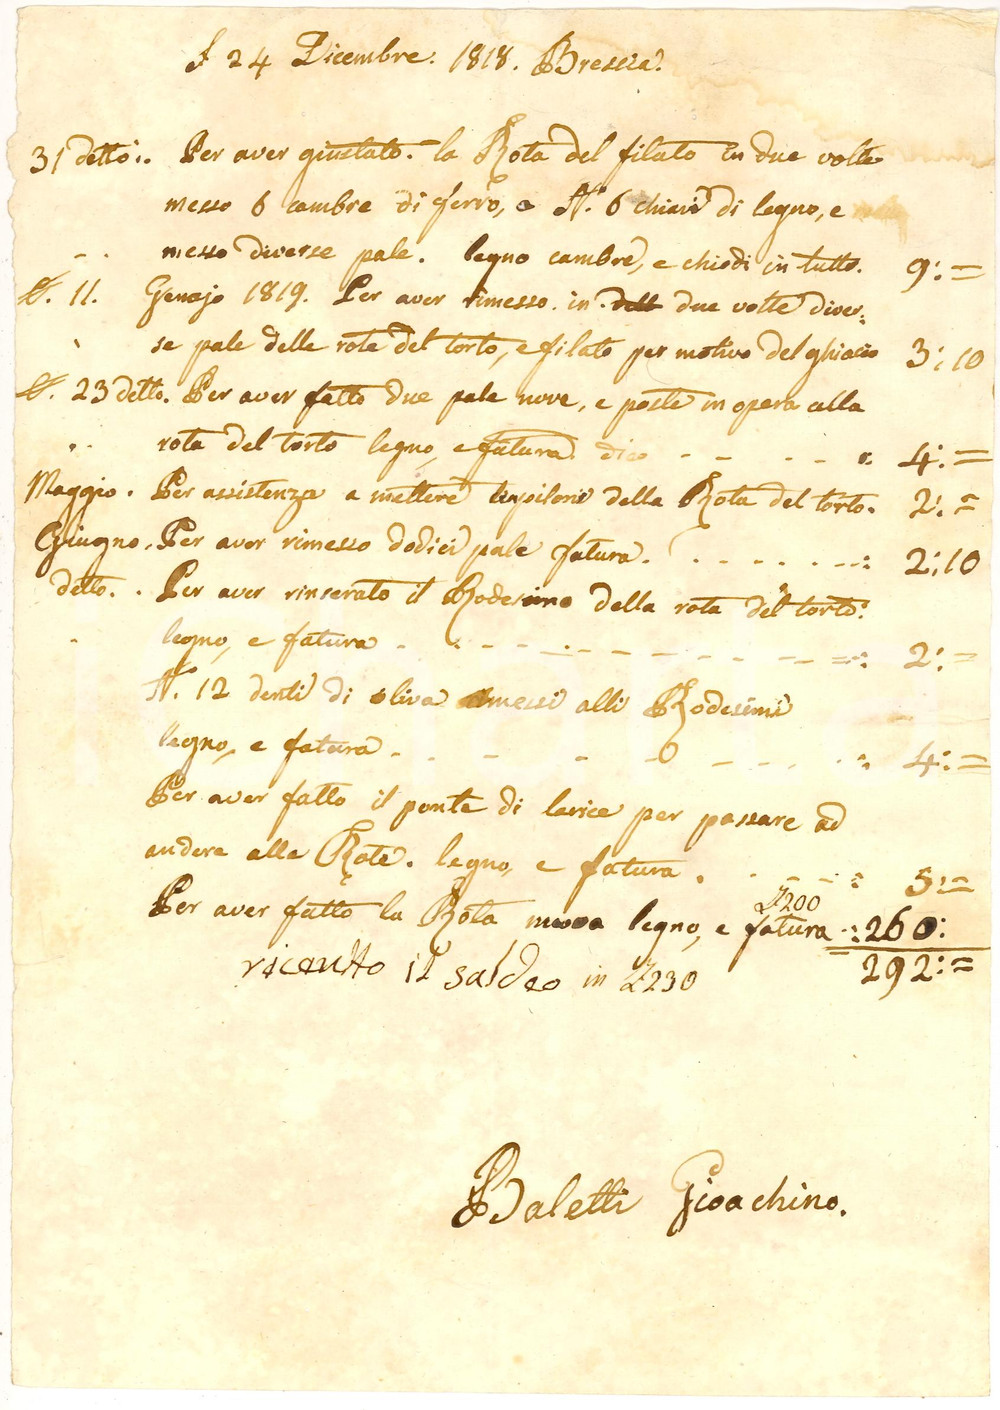 24 Dicembre. 1818. Brescia.
31 detto.. Per aver giustato. la Rota del filato in due volte
messo 6 cambre di ferro, e N. 6 chiavi di legno, e
messo diverse pale. legno cambre, e chiodi in tutto. 9:=
D. 11. Genajo 1819. Per aver rimesso. in due volte diver:
se pale delle rote del torto, e filato per motivo del ghiacio 3:10
D. 23 detto. Per aver fatto due pale nove, e poste in opera alla
rota del torto legno, e fatura dico 4:=
Maggio. Per assistenza a mettere della Rota del torto. 2:=
Giugno. Per aver rimesso dodici pale fatura. 2:10
detto. Per aver rinserato il Rodesimo della rota del torto:
legno, e fatura 2:=
N. 12 denti di oliva messi alli Rodesimi
legno, e fatura 4:=
Per aver fatto il ponte di larice per passare ad
andare alle Rote. legno, e fatura. 5:=
£200
Per aver fatto la Rota nuova legno, e fatura 260:
292:=
ricevuto il saldo in £230
Baletti Gioachino.